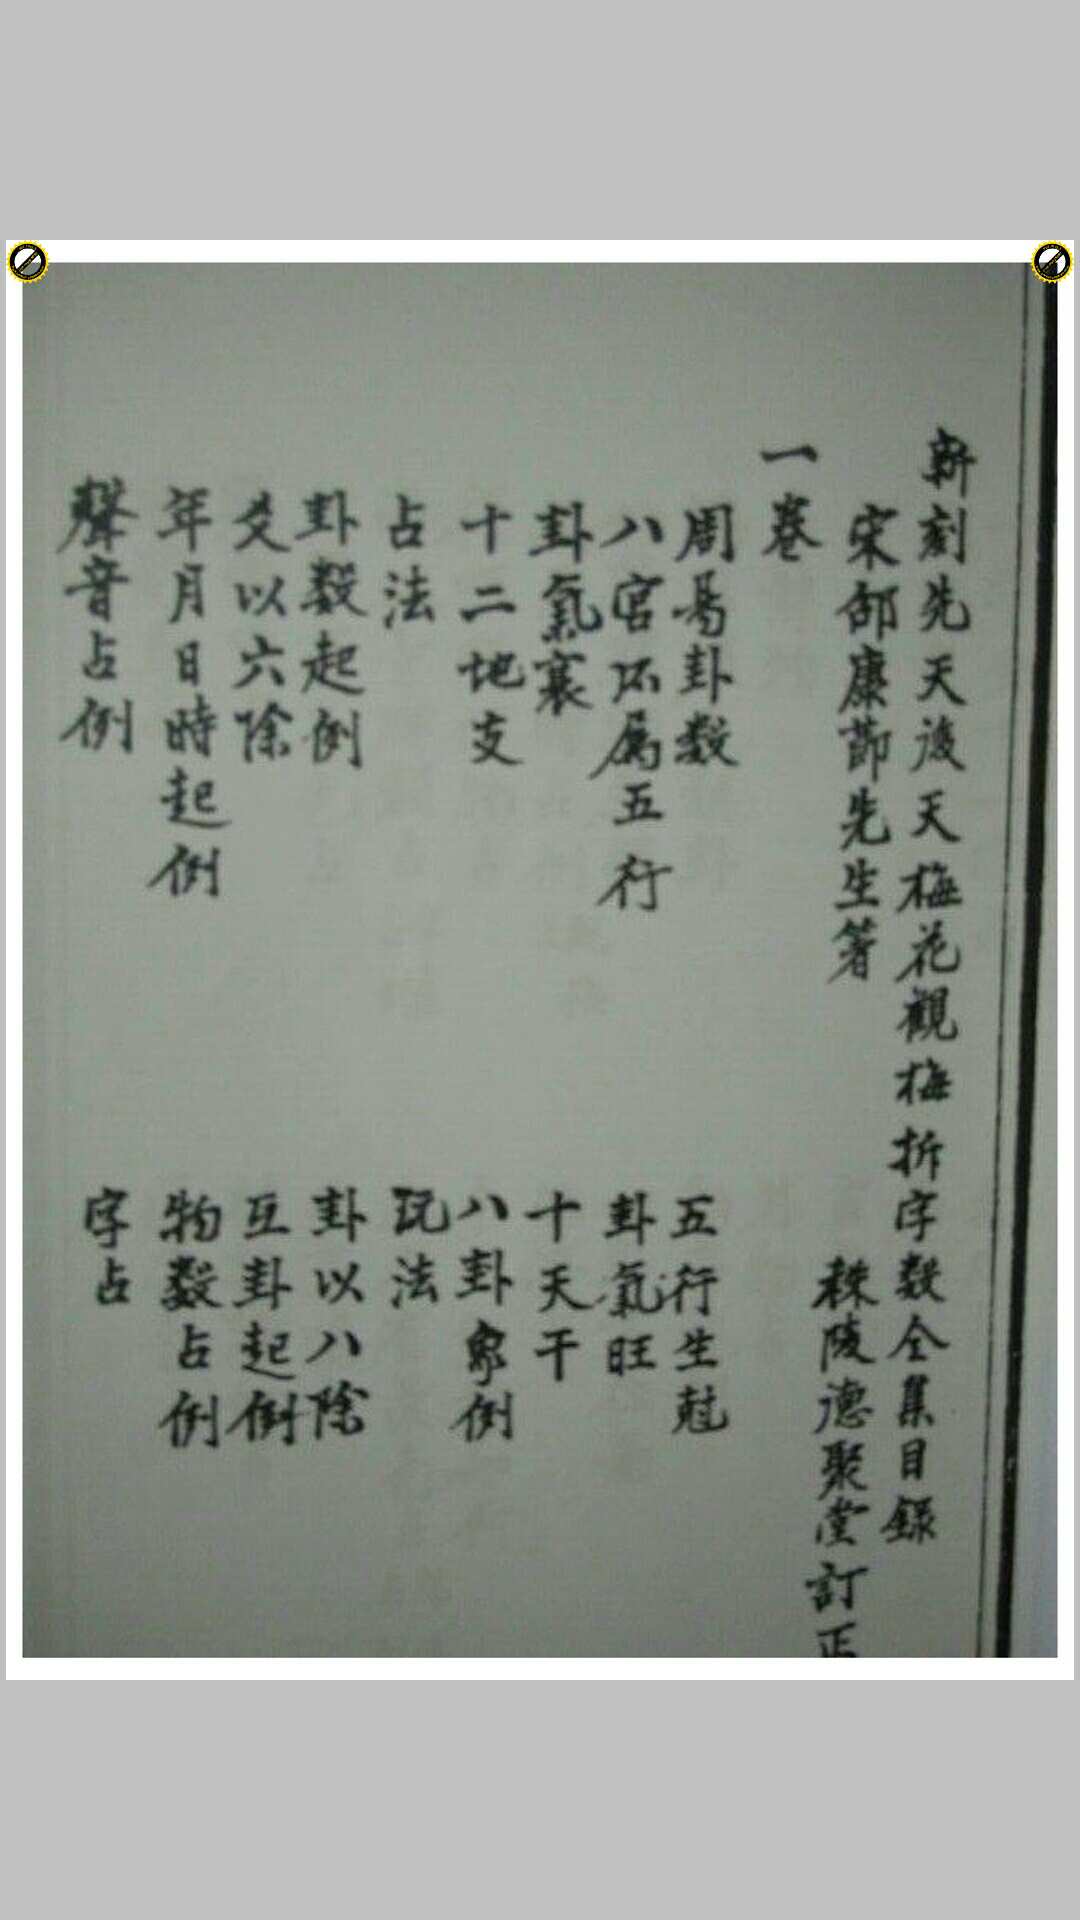 新刻先天後天梅花觀梅拆字数全集目録
宋邵康節先生著
秣陵德聚堂訂正
一卷
周易卦数
五行生尅
八宮所属五行
卦氣旺
卦氣衰
十天干
十二地支
八卦象例
占法
玩法
卦数起例
卦以八除
爻以六除
互卦起例
年月日時起例
物数占例
聲音占例
字占